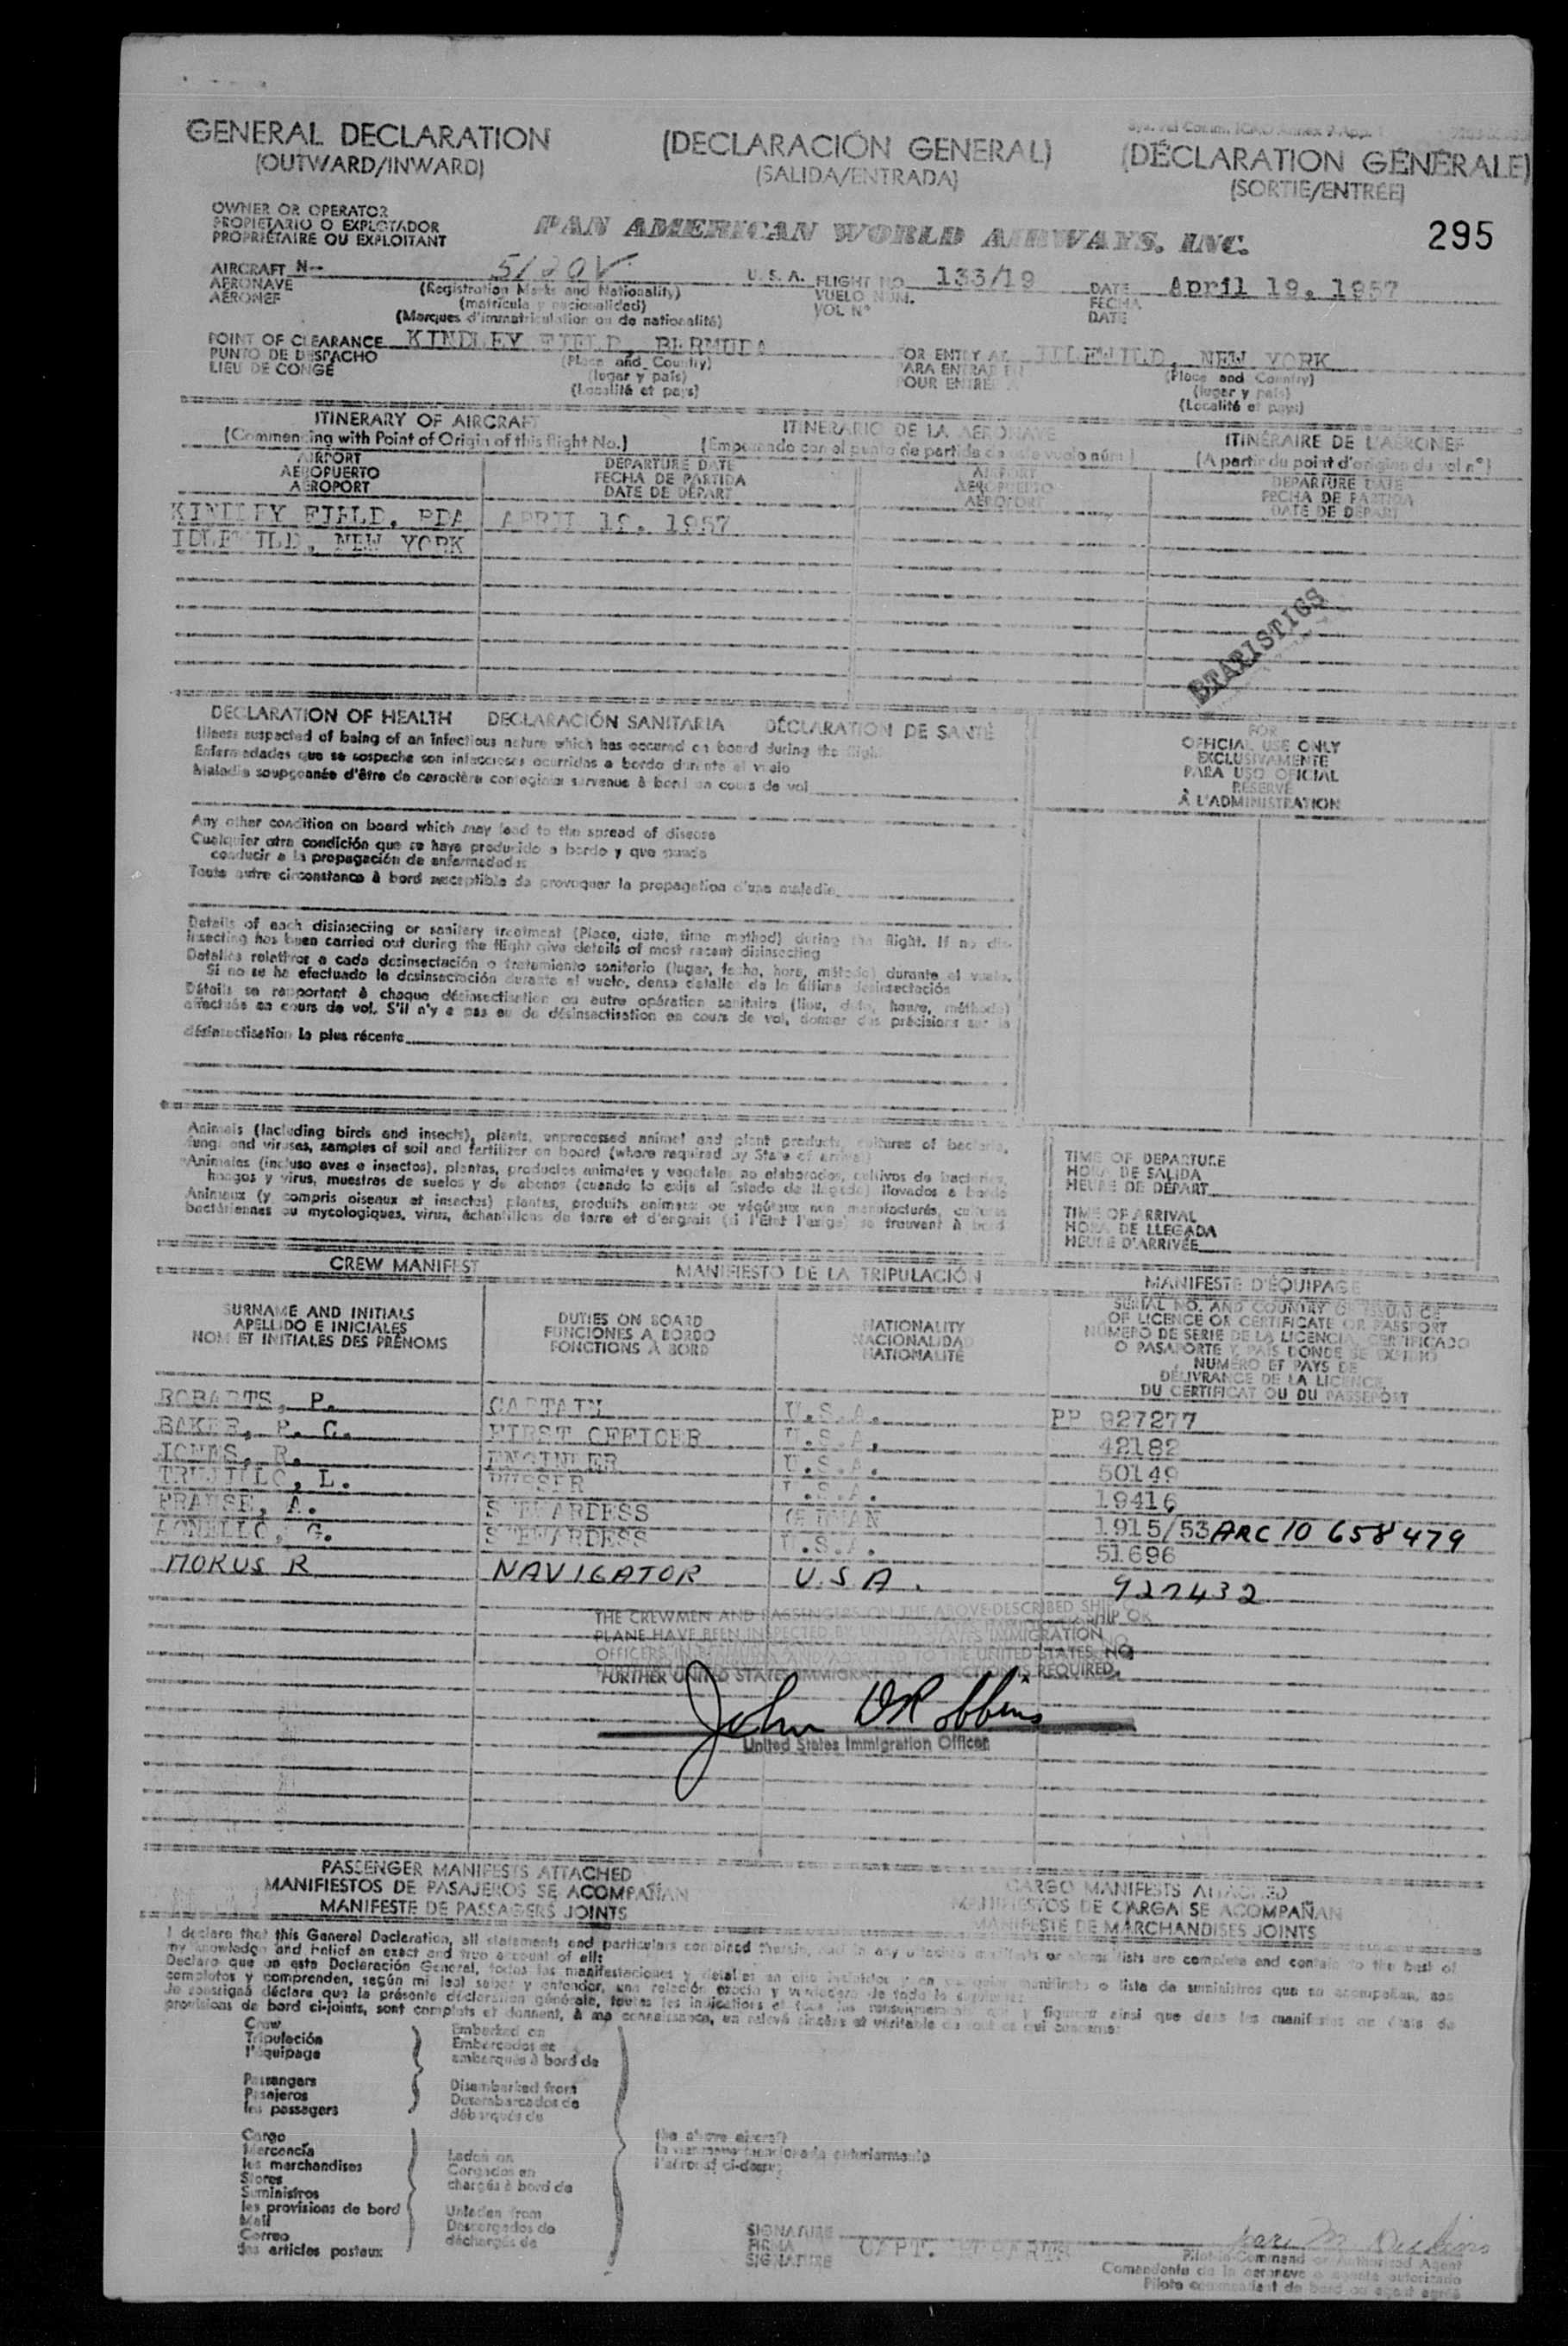 GENERAL DECLARATION (DECLARACIÓN GENERAL) (DÉCLARATION GÉNÉRALE)
(OUTWARD/INWARD) (SALIDA/ENTRADA) (SORTIE/ENTRÉE)
OWNER OR OPERATOR
PROPIETARIO O EXPLOTADOR
PROPRIÉTAIRE OU EXPLOITANT
PAN AMERICAN WORLD AIRWAYS, INC. 295
AIRCRAFT N- U.S.A. FLIGHT NO. 133/19 DATE April 19, 1957
AERONAVE (Registration Marks and Nationality) VUELO NÚM. FECHA
AÉRONEF (matrícula y nacionalidad) VOL Nº DATE
(Marques d'immatriculation ou de nationalité)
POINT OF CLEARANCE KINDLEY FIELD, BERMUDA FOR ENTRY AT IDLEWILD, NEW YORK
PUNTO DE DESPACHO (Place and Country) PARA ENTRAR EN (Place and Country)
LIEU DE CONGÉ (lugar y país) POUR ENTRER (lugar y país)
(Localité et pays) (Localité et pays)
ITINERARY OF AIRCRAFT ITINERARIO DE LA AERONAVE ITINÉRAIRE DE L'AÉRONEF
(Commencing with Point of Origin of this flight No.) (Empezando con el punto de partida de este vuelo núm.) (A partir du point d'origine du vol nº)
AIRPORT DEPARTURE DATE AIRPORT DEPARTURE DATE
AEROPUERTO FECHA DE PARTIDA AEROPUERTO FECHA DE PARTIDA
AÉROPORT DATE DE DÉPART AÉROPORT DATE DE DÉPART
KINDLEY FIELD, BDA APRIL 19, 1957
IDLEWILD, NEW YORK
STATISTICS
DECLARATION OF HEALTH DECLARACIÓN SANITARIA DÉCLARATION DE SANTÉ
Illness suspected of being of an infectious nature which has occured on board during the flight
Enfermedades que se sospeche son infecciosas ocurridas a bordo durante el vuelo
Maladie soupçonnée d'être de caractère contagieux survenue à bord en cours de vol
FOR
OFFICIAL USE ONLY
EXCLUSIVAMENTE
PARA USO OFICIAL
RÉSERVÉ
À L'ADMINISTRATION
Any other condition on board which may lead to the spread of disease
Cualquier otra condición que se haya producido a bordo y que pueda
conducir a la propagación de enfermedades
Toute autre circonstance à bord susceptible de provoquer la propagation d'une maladie
Details of each disinsecting or sanitary treatment (Place, date, time method) during the flight. If no dis-
insecting has been carried out during the flight give details of most recent disinsecting
Detalles relativos a cada desinsectación o tratamiento sanitario (lugar, fecha, hora, método) durante el vuelo.
Si no se ha efectuado la desinsectación durante el vuelo, dense detalles de la última desinsectación
Détails se rapportant à chaque désinsectisation ou autre opération sanitaire (lieu, date, heure, méthode)
effectuée en cours de vol. S'il n'y a pas eu de désinsectisation en cours de vol, donner des précisions sur la
désinsectisation la plus récente
Animals (including birds and insects), plants, unprocessed animal and plant products, cultures of bacteria,
fungi and viruses, samples of soil and fertilizer on board (where required by State of arrival)
Animales (incluso aves e insectos), plantas, productos animales y vegetales no elaborados, cultivos de bacterias,
hongos y virus, muestras de suelos y de abonos (cuando lo exija el Estado de llegada) llevados a bordo
Animaux (y compris oiseaux et insectes) plantes, produits animaux ou végétaux non manufacturés, cultures
bactériennes ou mycologiques, virus, échantillons de terre et d'engrais (si l'État l'exige) se trouvant à bord
TIME OF DEPARTURE
HORA DE SALIDA
HEURE DE DÉPART
TIME OF ARRIVAL
HORA DE LLEGADA
HEURE D'ARRIVÉE
CREW MANIFEST MANIFIESTO DE LA TRIPULACIÓN MANIFESTE D'ÉQUIPAGE
SURNAME AND INITIALS DUTIES ON BOARD NATIONALITY SERIAL NO. AND COUNTRY OF ISSUANCE
APELLIDO E INICIALES FUNCIONES A BORDO NACIONALIDAD OF LICENCE OR CERTIFICATE OR PASSPORT
NOM ET INITIALES DES PRÉNOMS FONCTIONS À BORD NATIONALITÉ NÚMERO DE SERIE DE LA LICENCIA, CERTIFICADO
O PASAPORTE Y PAÍS DONDE SE EXPIDIÓ
NUMÉRO ET PAYS DE
DÉLIVRANCE DE LA LICENCE,
DU CERTIFICAT OU DU PASSEPORT
ROBARTS, P. CAPTAIN U.S.A. PP 927277
BAKER, P. G. FIRST OFFICER U.S.A. 42182
JONES, R. ENGINEER U.S.A. 50149
TRUJILLO, L. PURSER U.S.A. 19416
PRAUSE, A. STEWARDESS GERMAN 1915/53 ARC 10 658 479
AGNELLO, G. STEWARDESS U.S.A. 51696
MORUS R NAVIGATOR U.S.A. 927432
THE CREWMEN AND PASSENGERS ON THE ABOVE-DESCRIBED SHIP OR
PLANE HAVE BEEN INSPECTED BY UNITED STATES IMMIGRATION
OFFICERS IN BERMUDA AND ADMITTED TO THE UNITED STATES. NO
FURTHER UNITED STATES IMMIGRATION INSPECTION IS REQUIRED.
John D Robbins
United States Immigration Officer
PASSENGER MANIFESTS ATTACHED CARGO MANIFESTS ATTACHED
MANIFIESTOS DE PASAJEROS SE ACOMPAÑAN MANIFIESTOS DE CARGA SE ACOMPAÑAN
MANIFESTE DE PASSAGERS JOINTS MANIFESTE DE MARCHANDISES JOINTS
I declare that this General Declaration, all statements and particulars contained therein, and in any attached manifests or stores lists are complete and contain to the best of
my knowledge and belief an exact and true account of all:
Declaro que en esta Declaración General, todas las manifestaciones y detalles en ella incluidos y en cualquier manifiesto o lista de suministros que se acompañan, son
completos y comprenden, según mi leal saber y entender, una relación exacta y verdadera de todo lo siguiente:
Je soussigné déclare que la présente déclaration générale, toutes les indications et tous les renseignements qui y figurent ainsi que dans les manifestes ou états de
provisions de bord ci-joints, sont complets et donnent, à ma connaissance, un relevé sincère et véritable de tout ce qui concerne:
Crew Embarked on
Tripulación Embarcados en
l'équipage embarqués à bord de
Passengers Disembarked from
Pasajeros Desembarcados de
les passagers débarqués de
Cargo the above aircraft
Mercancía Laden on la aeronave mencionada anteriormente
les marchandises Cargados en l'aéronef ci-dessus
Stores chargés à bord de
Suministros
les provisions de bord Unladen from
Mail Descargados de
Correo déchargés de
des articles postaux
SIGNATURE
FIRMA CAPT. ROBARTS
SIGNATURE
Pilot-in-Command or Authorized Agent
Comandante de la aeronave o agente autorizado
Pilote commandant de bord ou agent agréé